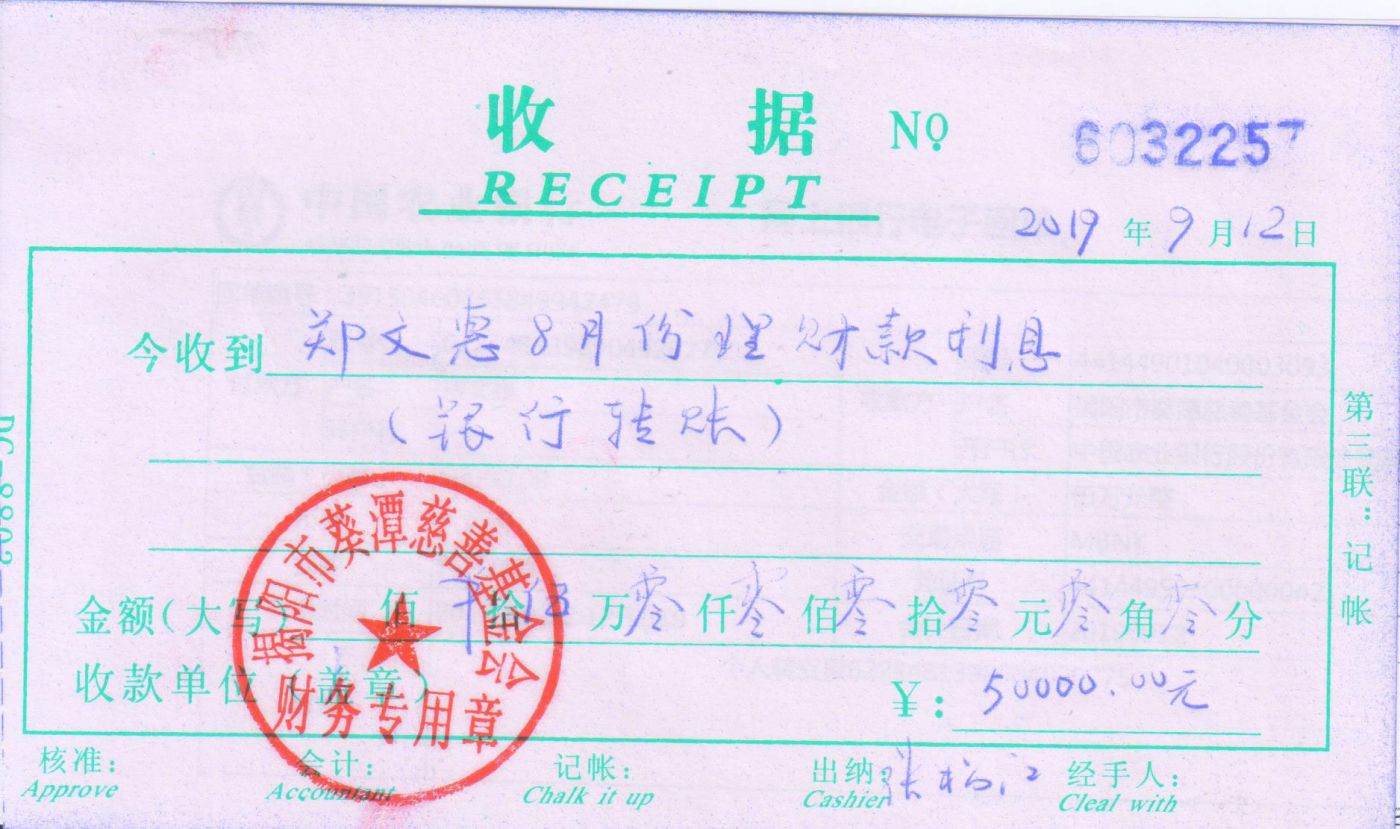 收据 NO 6032257
RECEIPT
2019年9月12日
今收到 郑文惠8月份理财款利息
(银行转账)
金额(大写) 佰 拾伍万零仟零佰零拾零元零角零分
收款单位(盖章) ¥:50000.00元
揭阳市葵潭慈善基金会
财务专用章
第三联:记帐
核准: 会计: 记帐: 出纳: 经手人:
Approve Accountant Chalk it up Cashier Cleal with